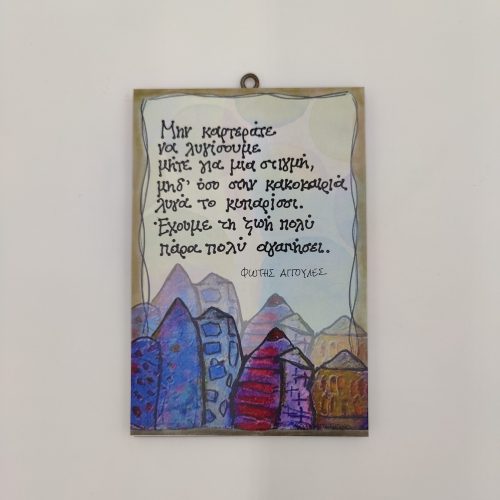 Μην καρτεράτε
να λυγίσουμε
μήτε για μια στιγμή,
μηδ' όσο στην κακοκαιριά
λυγά το κυπαρίσσι.
Έχουμε τη ζωή πολύ
πάρα πολύ αγαπήσει.
ΦΩΤΗΣ ΑΓΓΟΥΛΕΣ